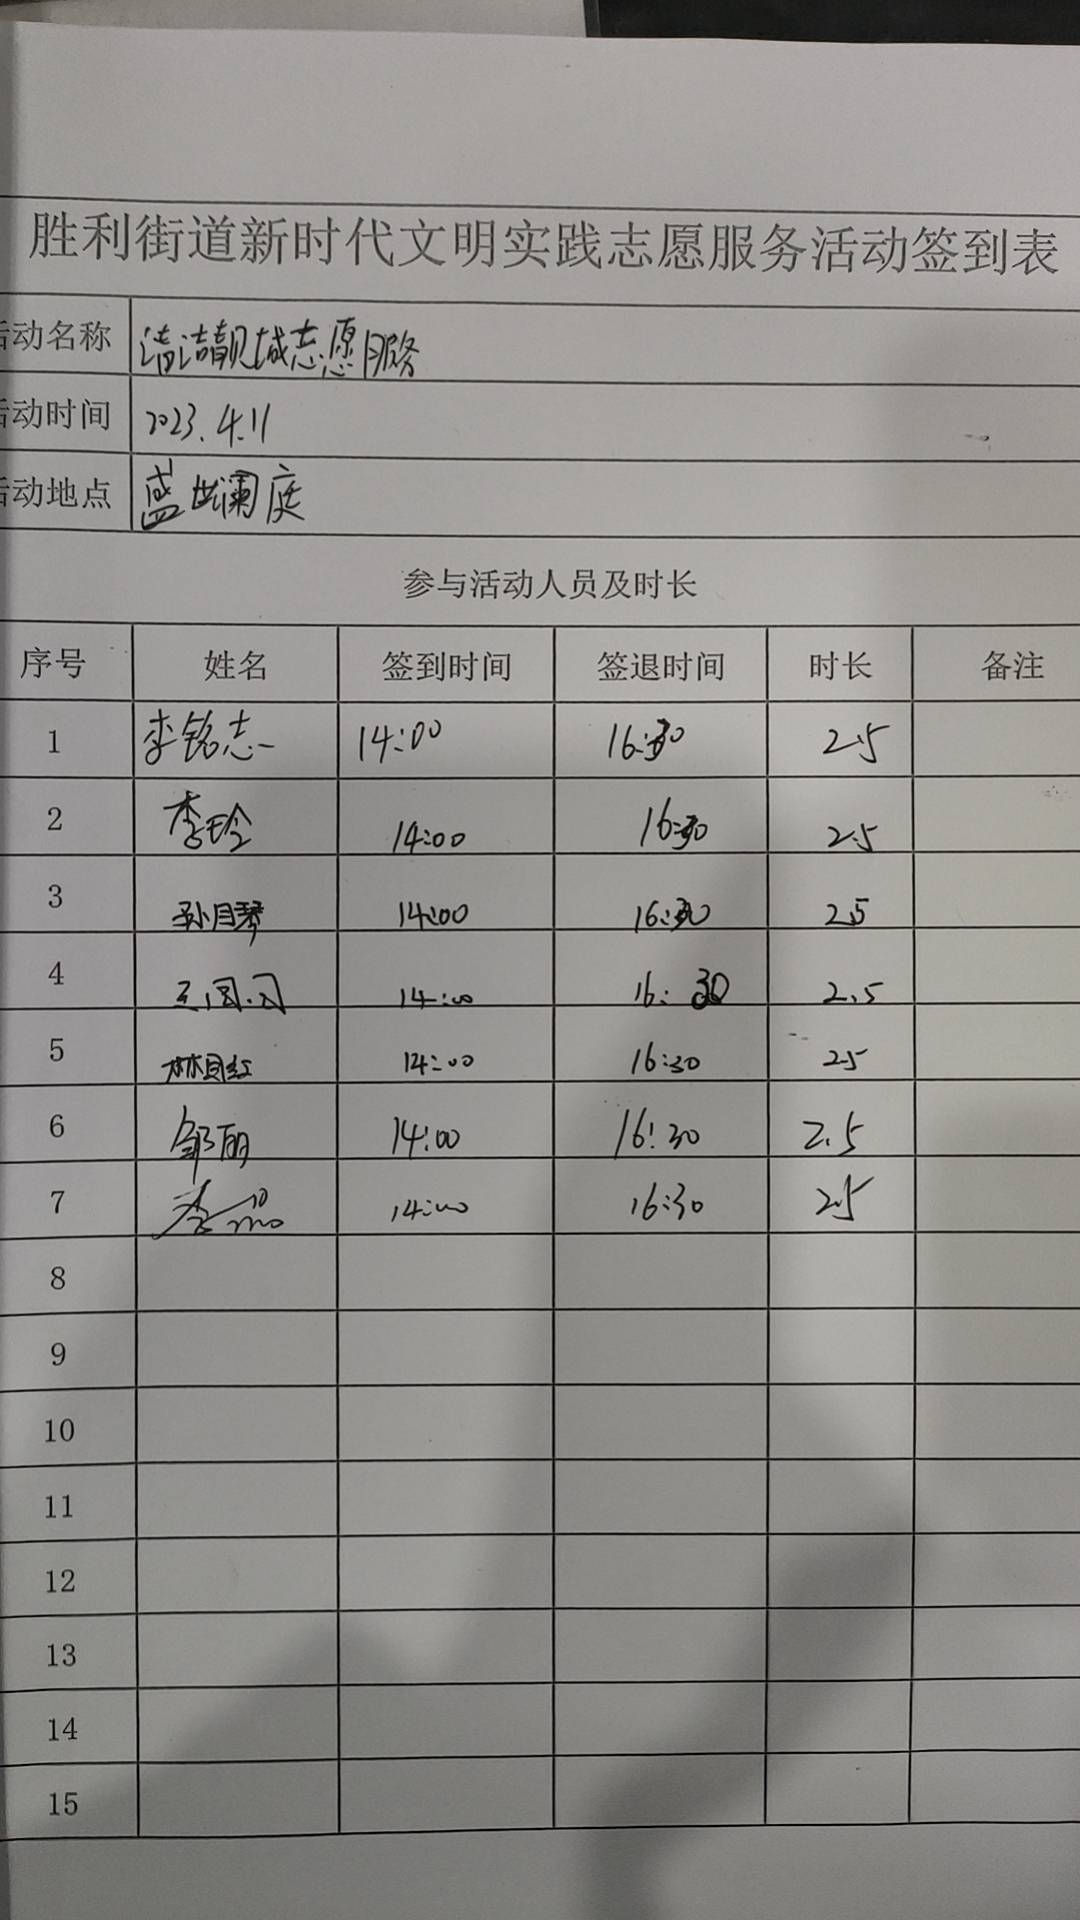 胜利街道新时代文明实践志愿服务活动签到表
活动名称 清洁靓城志愿服务
活动时间 2023.4.11
活动地点 盛世澜庭
参与活动人员及时长
序号 姓名 签到时间 签退时间 时长 备注
1 李铭志 14:00 16:30 2.5
2 李玲 14:00 16:30 2.5
3 孙月琴 14:00 16:30 2.5
4 14:00 16:30 2.5
5 14:00 16:30 2.5
6 邹丽 14:00 16:30 2.5
7 14:00 16:30 2.5
8
9
10
11
12
13
14
15